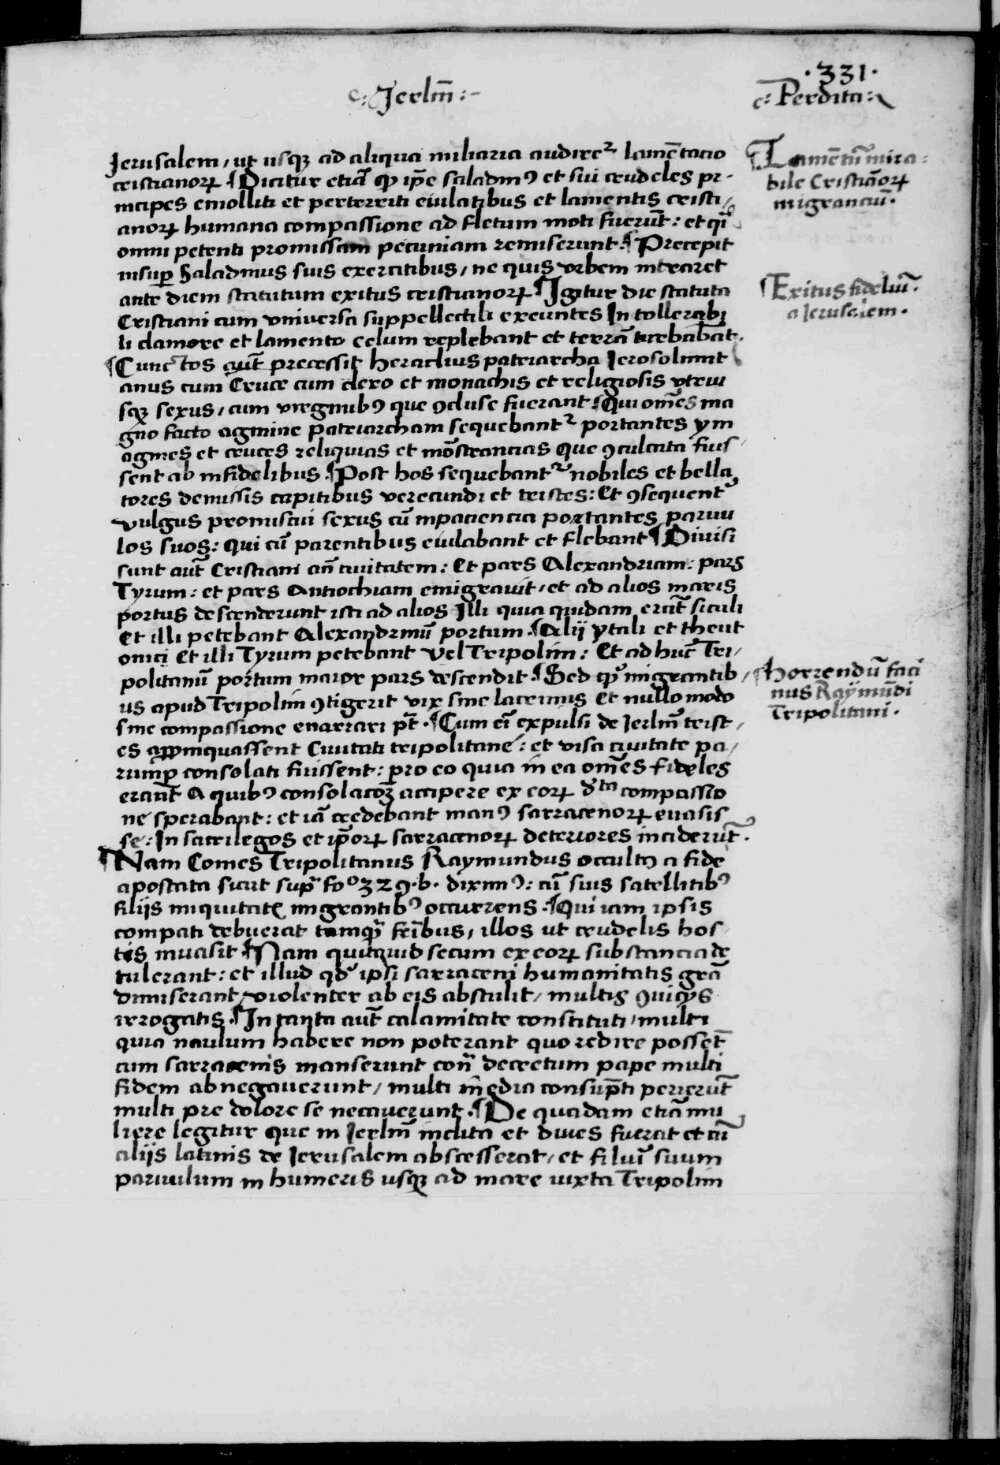 ·331·
·Jerlm̄:-
·Perdita·
Jerusalem, ut usqꝫ ad aliqua miliaria audireꝰ lamētacio
cristianoꝝ ¶ Dicitur etiā qꝫ ip̄e saladinꝰ et sui crudeles pri
ncipes emolliti et perterriti eiulatibus et lamentis cristi,
anoꝝ humana compassione ad fletum moti fuerūt: et q̄i
omni petenti promissam pecuniam remiserunt. ¶ Precepit
insuꝑ Saladinus suis exercitibus, ne quis urbem intraret
ante diem statutum exitus cristianoꝝ ¶ Igitur die statuta
Cristiani cum universa suppellectili exeuntes In tollerabi
li clamore et lamento celum replebant et terrā turbabāt.
¶ Cunctos aūt precessit heraclius patriarcha Jerosolimit
anus cum Cruce cum clero et monachis et religiosis utriu
sqꝫ sexus, cum virginibꝰ que ꝯcluse fuerant ¶ Qui om̄es ma
gno facto agmine patriarcham sequebantꝰ portantes ym
agines et cruces reliquias et mōstrancias que ꝯculcata fuis
sent ab infidelibus. ¶ Post hos sequebantꝰ nobiles et bella
tores demissis capitibus verecundi et tristes: Et ꝯsequentꝰ
vulgus promiscui sexus cū inpaciencia portantes parvu
los suos: qui cū parentibus eiulabant et flebant ¶ Divisi
sunt aūt Cristiani an̄ civitatem: Et pars Alexandriam: pars
Tyrum: et pars Antiochiam emigravit, et ad alios maris
portus descenderunt isti ad alios Illi quia quidam erāt siculi
Et illi petebant Alexandrinū portum. ¶ Alij ytali et theut
onici Et illi Tyrum petebant vel Tripolim: Et ad hūc Tri,
politanū portum maior pars descendit. ¶ Sed qꝫ migrantib,
us apud Tripolim ꝯtigerit vix sine lacrimis et nullo modo
sine compassione enarrari pt̄. ¶ Cum em̄ expulsi de Jerlm̄ trist,
es appropinquassent Civitati tripolitane: et visa civitate pa,
rumꝑ consolati fuissent: pro eo quia in ea om̄es fideles
erant A quibꝰ consolacōꝫ accipere ex eoꝝ compassio
ne sperabant: et iā credebant manꝰ sarracenoꝝ evasis
se: In sacrilegos et ip̄oꝝ sarracenoꝝ deteriores inciderūt.
¶ Nam Comes Tripolitanus Raymundus occultꝰ a fide
apostata sicut supꝰ fo 329.b. diximꝰ: cū suis satellitibꝰ
filijs iniquitatꝭ migrantibꝰ occurrens. ¶ Qui iam ipsis
compati debuerat tamqꝫ fr̄ibus, illos ut crudelis hos
tis invasit. ¶ Nam quitquid secum ex eoꝝ substancia de
tulerant: et illud qd̄ ipsi sarraceni humanitatis grā
dimiserant, violenter ab eis abstulit, multis ꝯvicijs
irrogatis. ¶ In tanta aūt calamitate constituti, multi
quia naulum habere non poterant quo redire possēt
cum sarracenis manserunt con̄ decretum pape multi
fidem abnegaverunt, multi inedia consūpti perierūt
multi pre dolore se necaverunt. ¶ De quadam etiā mu
liere legitur que in Jerlm̄ inclita et dives fuerat et cū
aliis latinis de Jerusalem abscesserat, et filiū suum
parvulum in humeris usqꝫ ad mare iuxta Tripolim
¶ Lamentū mira:
bile Cristianoꝝ
migranciū.
¶ Exitus fideliū.
a Jerusalem.
¶ horrendū faci
nus Raymūdi
Tripolitani.